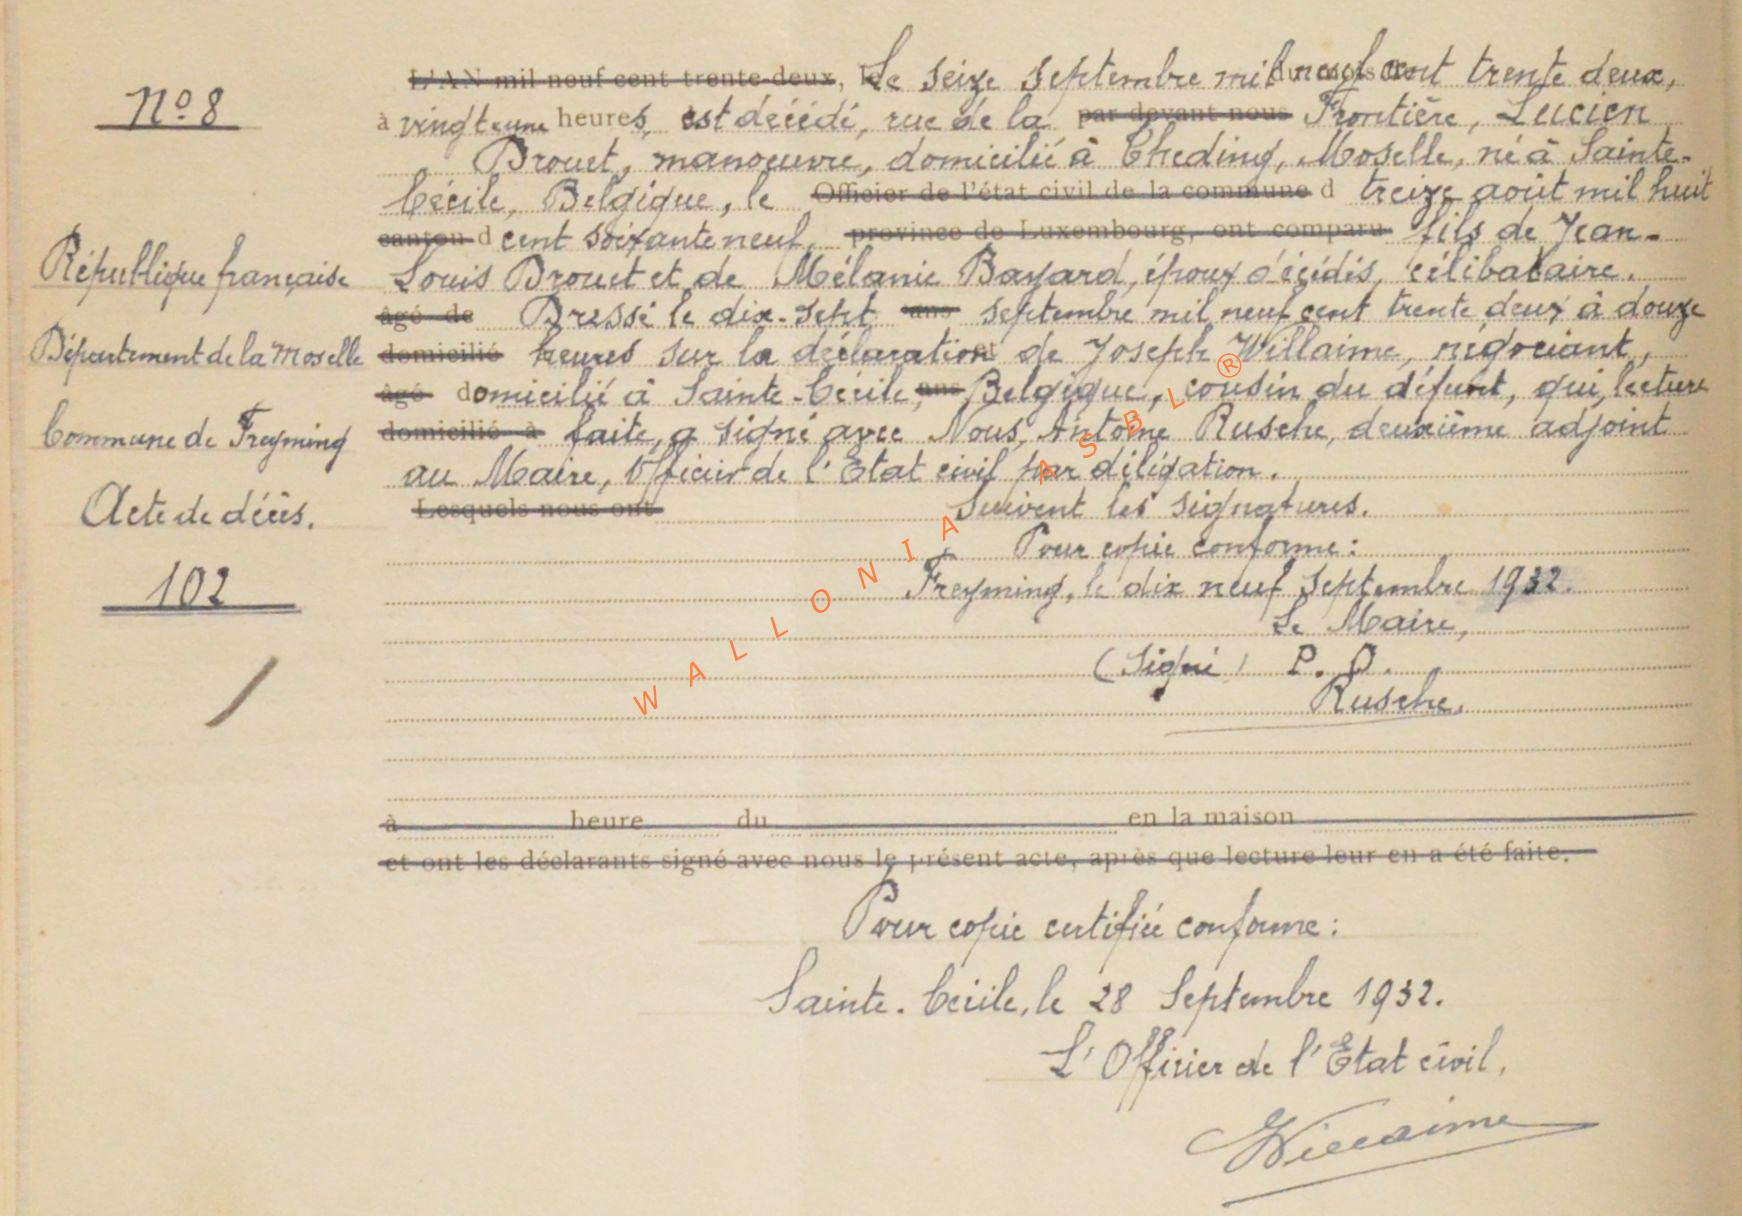 N° 8
L'AN mil neuf cent trente-deux, le Le seize septembre mil neuf cent trente deux,
à vingt une heures, est décédé, rue de la par devant nous Frontière, Lucien
Drouet, manoeuvre, domicilié à Théding, Moselle, né à Sainte-
Cécile, Belgique, le Officier de l'état civil de la commune d treize août mil huit
canton d cent soixante neuf, province de Luxembourg, ont comparu fils de Jean-
République française
Louis Drouet et de Mélanie Bayard, époux décédés, célibataire.
âgé de Dressé le dix-sept ans septembre mil neuf cent trente deux à douze
Département de la Moselle
domicilié heures sur la déclaration de Joseph Willaime, négociant,
âgé domicilié à Sainte-Cécile, ans Belgique, cousin du défunt, qui, lecture
Commune de Freyming
domicilié à faite, a signé avec Nous, Antoine Rusche, deuxième adjoint
au Maire, Officier de l'Etat civil par délégation.
Acte de décès.
Lesquels nous ont Suivent les signatures.
Pour copie conforme :
102
Freyming, le dix neuf septembre 1932.
Le Maire,
(Signé) P. D.
Rusche.
à heure du en la maison
et ont les déclarants signé avec nous le présent acte, après que lecture leur en a été faite.
Pour copie certifiée conforme :
Sainte-Cécile, le 28 Septembre 1932.
L'Officier de l'Etat civil,
Willaime
WALLONIA ASBL ®